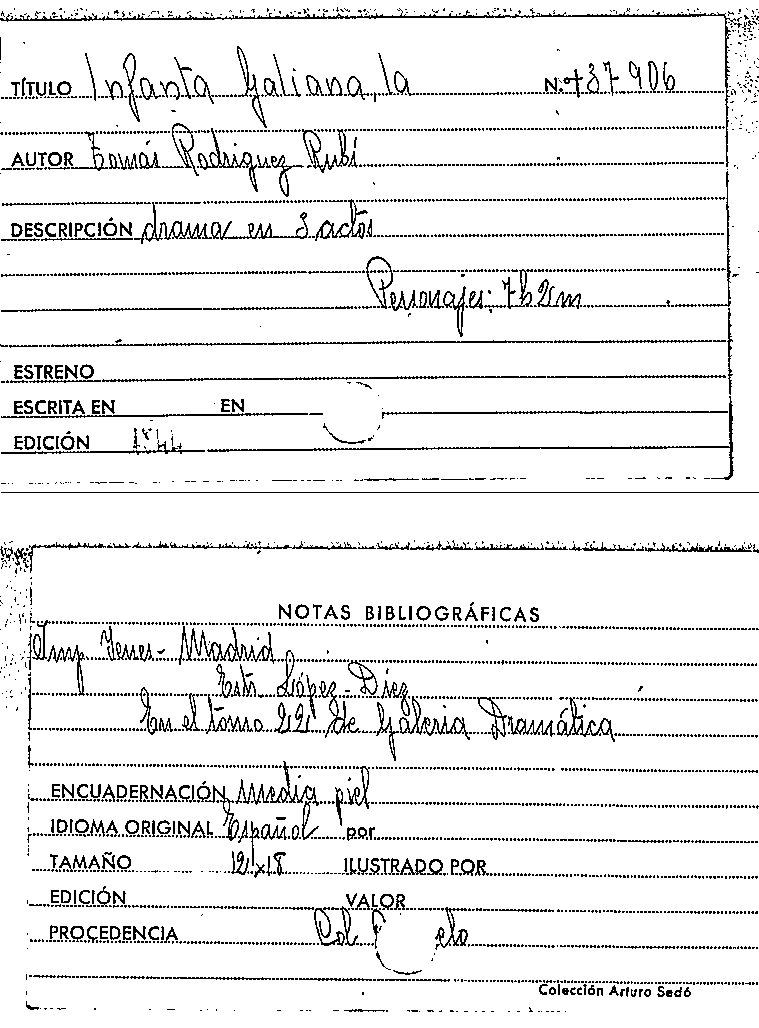 TÍTULO Infanta Galiana, la N.º 37906
AUTOR Tomás Rodriguez Rubí
DESCRIPCIÓN drama en 3 actos
Personajes: 7h 2m
ESTRENO
ESCRITA EN EN
EDICIÓN 1844
NOTAS BIBLIOGRÁFICAS
Imp Yenes - Madrid
López - Díez
En el tomo 22 de Galeria Dramática
ENCUADERNACIÓN Media piel
IDIOMA ORIGINAL Español por
TAMAÑO 12x18 ILUSTRADO POR
EDICIÓN VALOR
PROCEDENCIA Col.
Colección Arturo Sedó